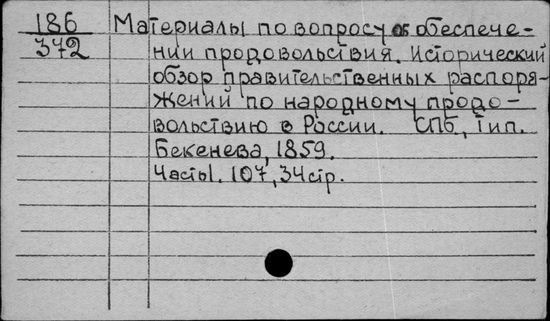 186 Материалы по вопросу об обеспече-
372 нии продовольствия. Исторический
обзор правительственных распоря-
жений по народному продо-
вольствию в России. СПб, Тип.
Бекенева, 1859.
Часть1. 107, 34 стр.